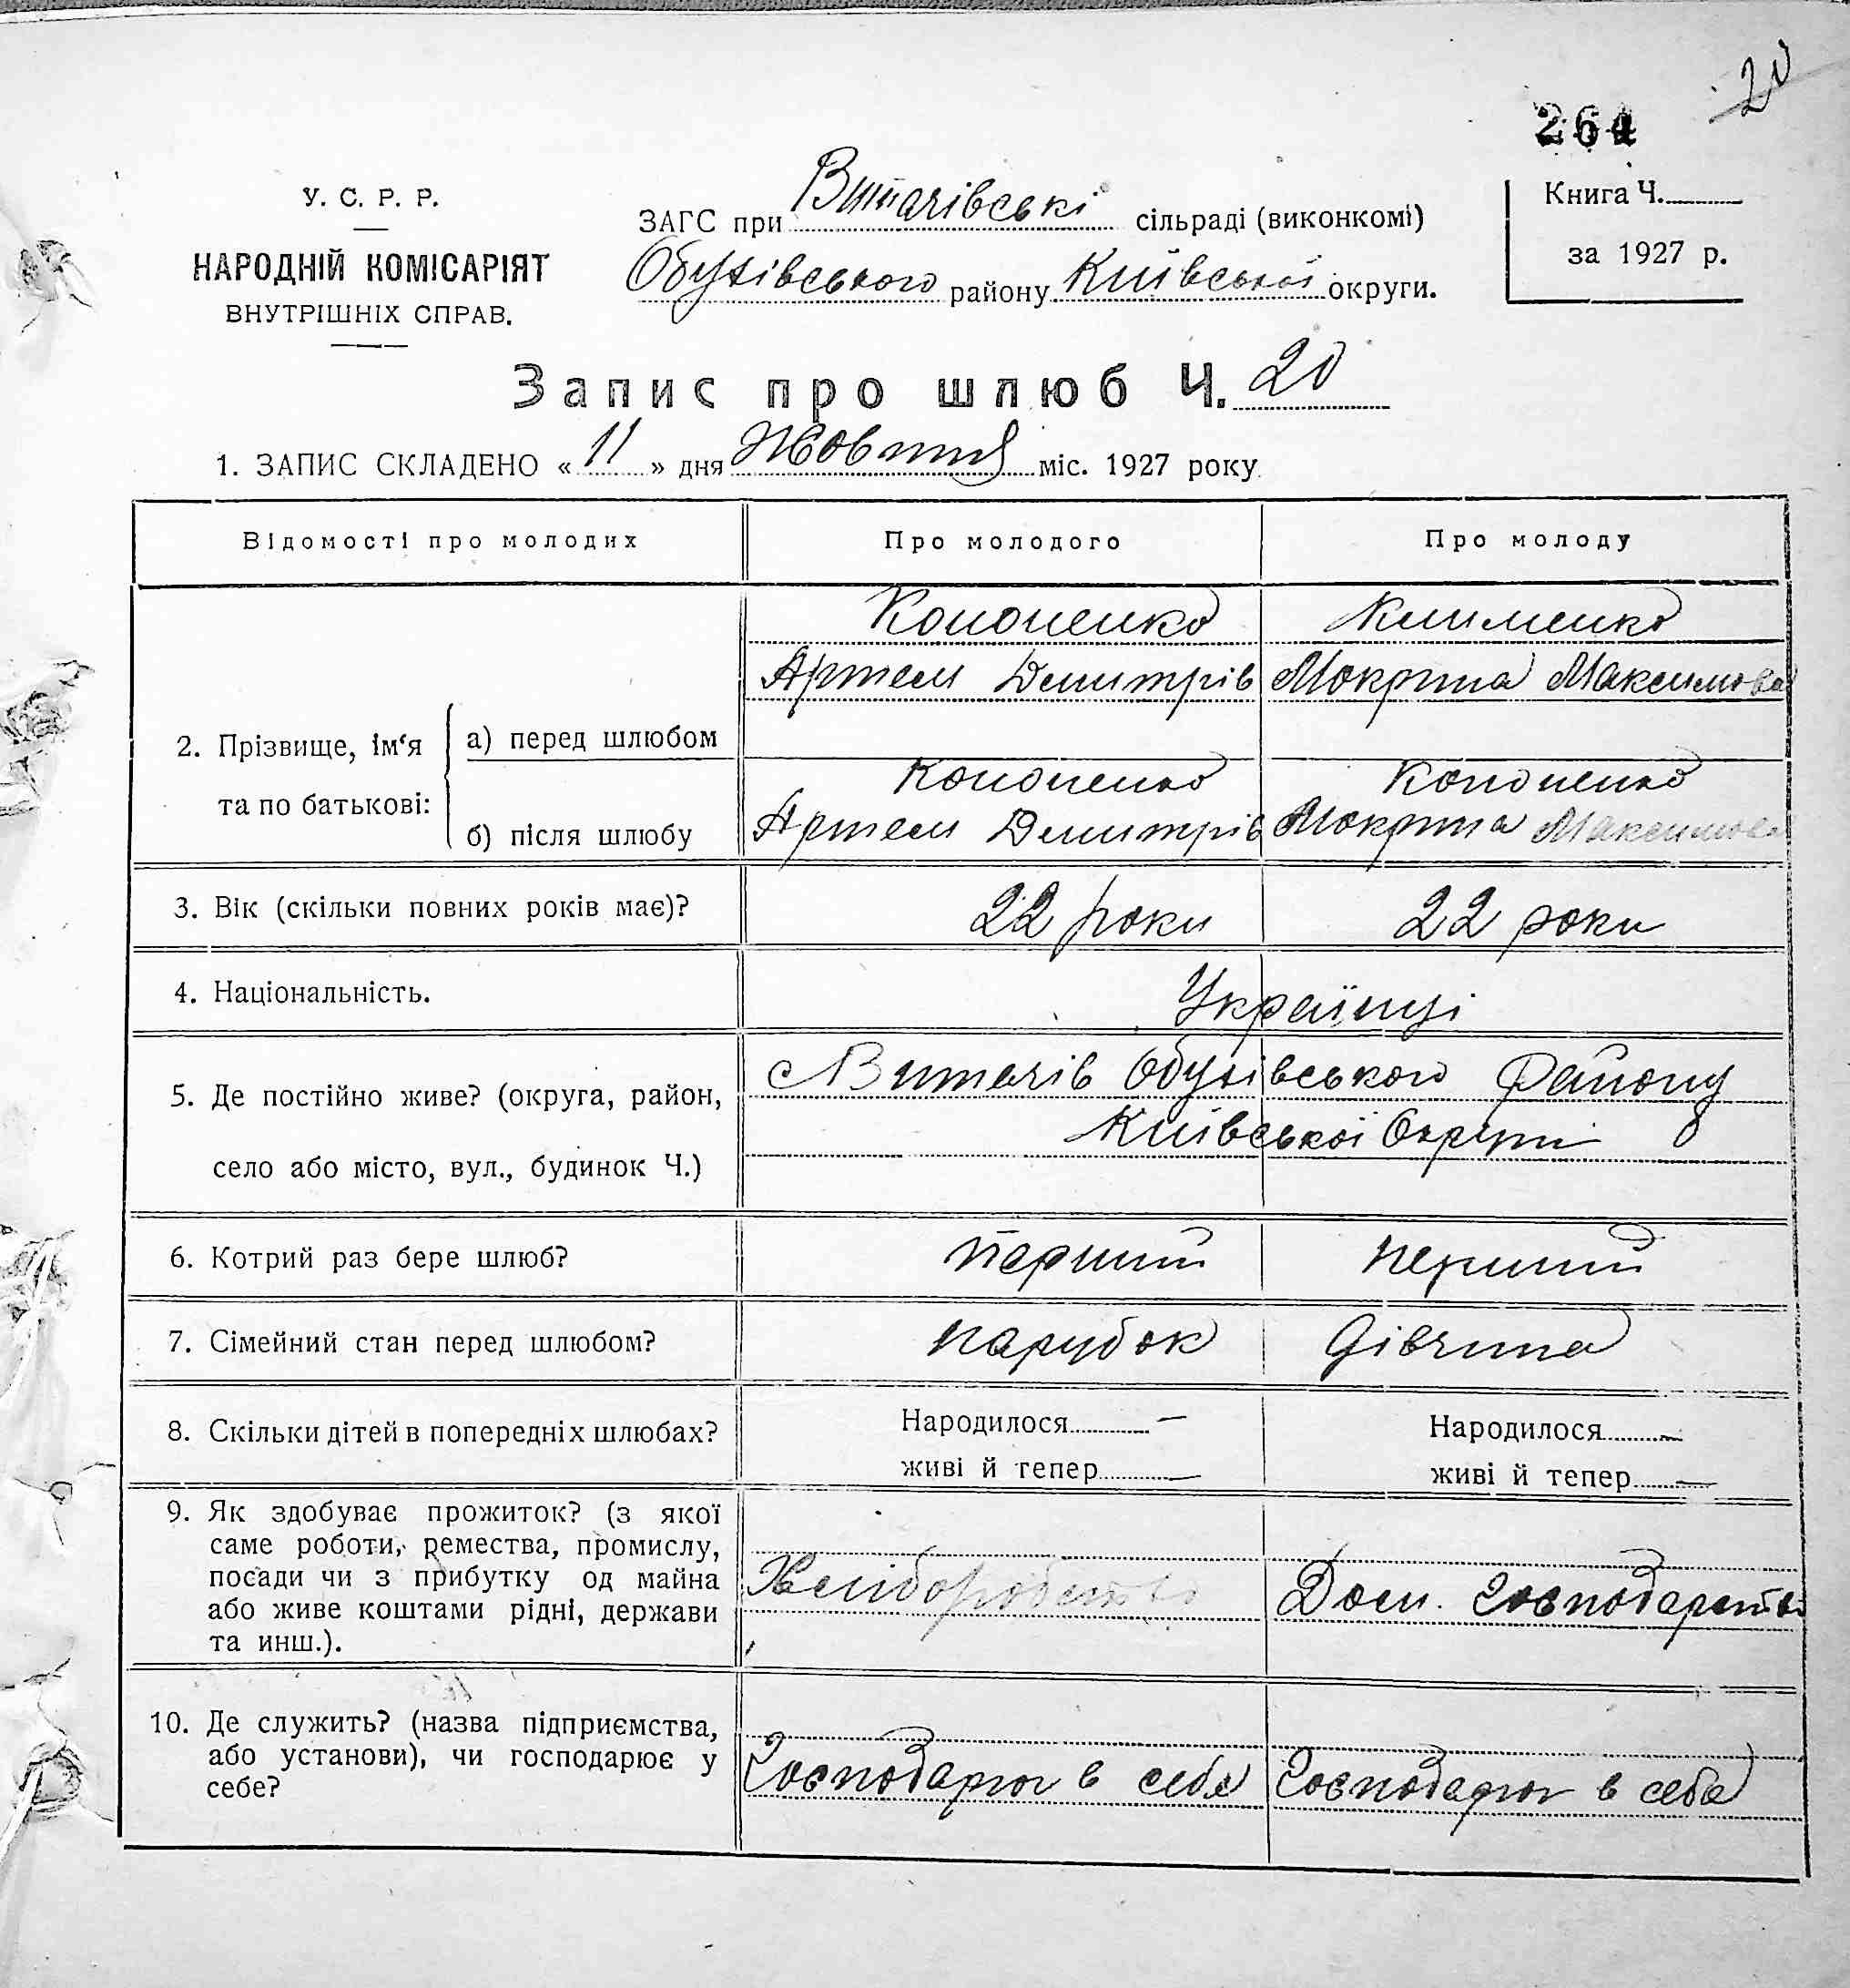 20
264
У. С. Р. Р.
НАРОДНІЙ КОМІСАРІЯТ
ВНУТРІШНІХ СПРАВ.
ЗАГС при Витачівські сільраді (виконкомі)
Обухівського району Київської округи.
Книга Ч.
за 1927 р.
Запис про шлюб Ч. 20
1. ЗАПИС СКЛАДЕНО « 11 » дня Жовтня міс. 1927 року.
Відомості про молодих Про молодого Про молоду
Кононенко Клименко
Артем Димитрів Мокрина Максимова
2. Прізвище, ім‘я та по батькові:
а) перед шлюбом
Кононенко Кононенко
б) після шлюбу Артем Димитрів Мокрина Максимова
3. Вік (скільки повних років має)? 22 роки 22 роки
4. Національність. Українці
5. Де постійно живе? (округа, район, с Витачів Обухівського Району
село або місто, вул., будинок Ч.) Київської Округи
6. Котрий раз бере шлюб? Перший перший
7. Сімейний стан перед шлюбом? парубок Дівчина
8. Скільки дітей в попередніх шлюбах? Народилося — Народилося —
живі й тепер — живі й тепер —
9. Як здобуває прожиток? (з якої
саме роботи, ремества, промислу,
посади чи з прибутку од майна Хліборобство Дом. Господарство
або живе коштами рідні, держави
та инш.).
10. Де служить? (назва підприємства,
або установи), чи господарює у Господарює в себе Господарює в себе
себе?